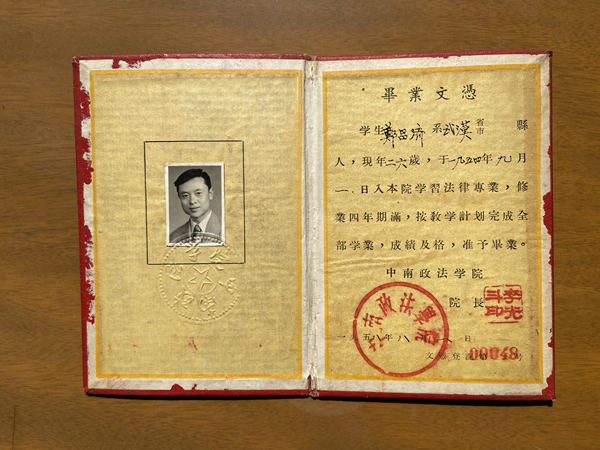 畢業文憑
学生鄭昌濟系武漢省市縣
人，現年二六歲，于一九五四年九月
一日入本院学習法律專業，修
業四年期滿，按教学計划完成全
部学業，成績及格，准予畢業。
中南政法学院
院長
李光斗印
一九五八年八月一日
文憑登記第00048号